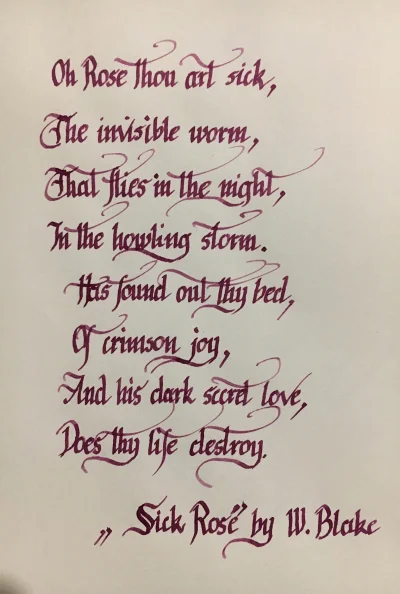 Oh Rose thou art sick,
The invisible worm,
That flies in the night,
In the howling storm.
Has found out thy bed,
Of crimson joy,
And his dark secret love,
Does thy life destroy.
„Sick Rose" by W. Blake